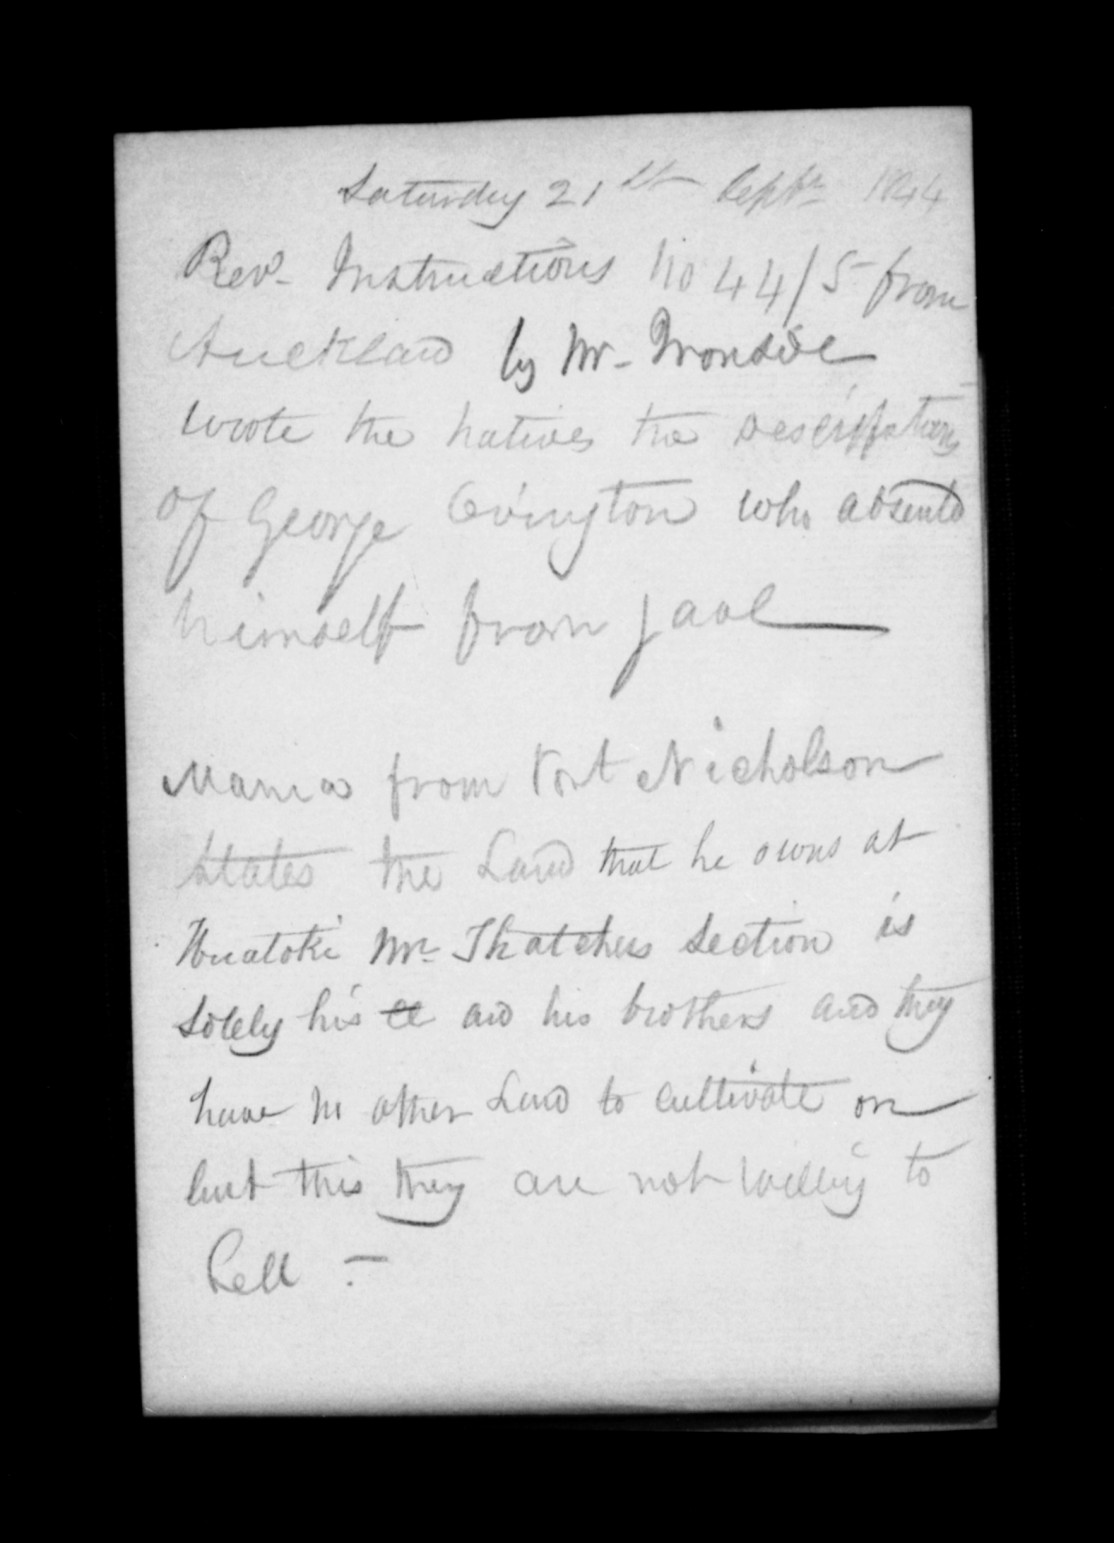 Saturday 21st Septr 1844
Recd. Instructions No 44/5 from
Auckland by Mr. Ironside
wrote the natives the description
of George Covington who absented
himself from jaol
from Port Nicholson
States the Land that he owns at
Huatoki Mr. Thatchers Section is
Solely his and his brothers and they
have no other Land to cultivate on
but this they are not willing to
Sell -